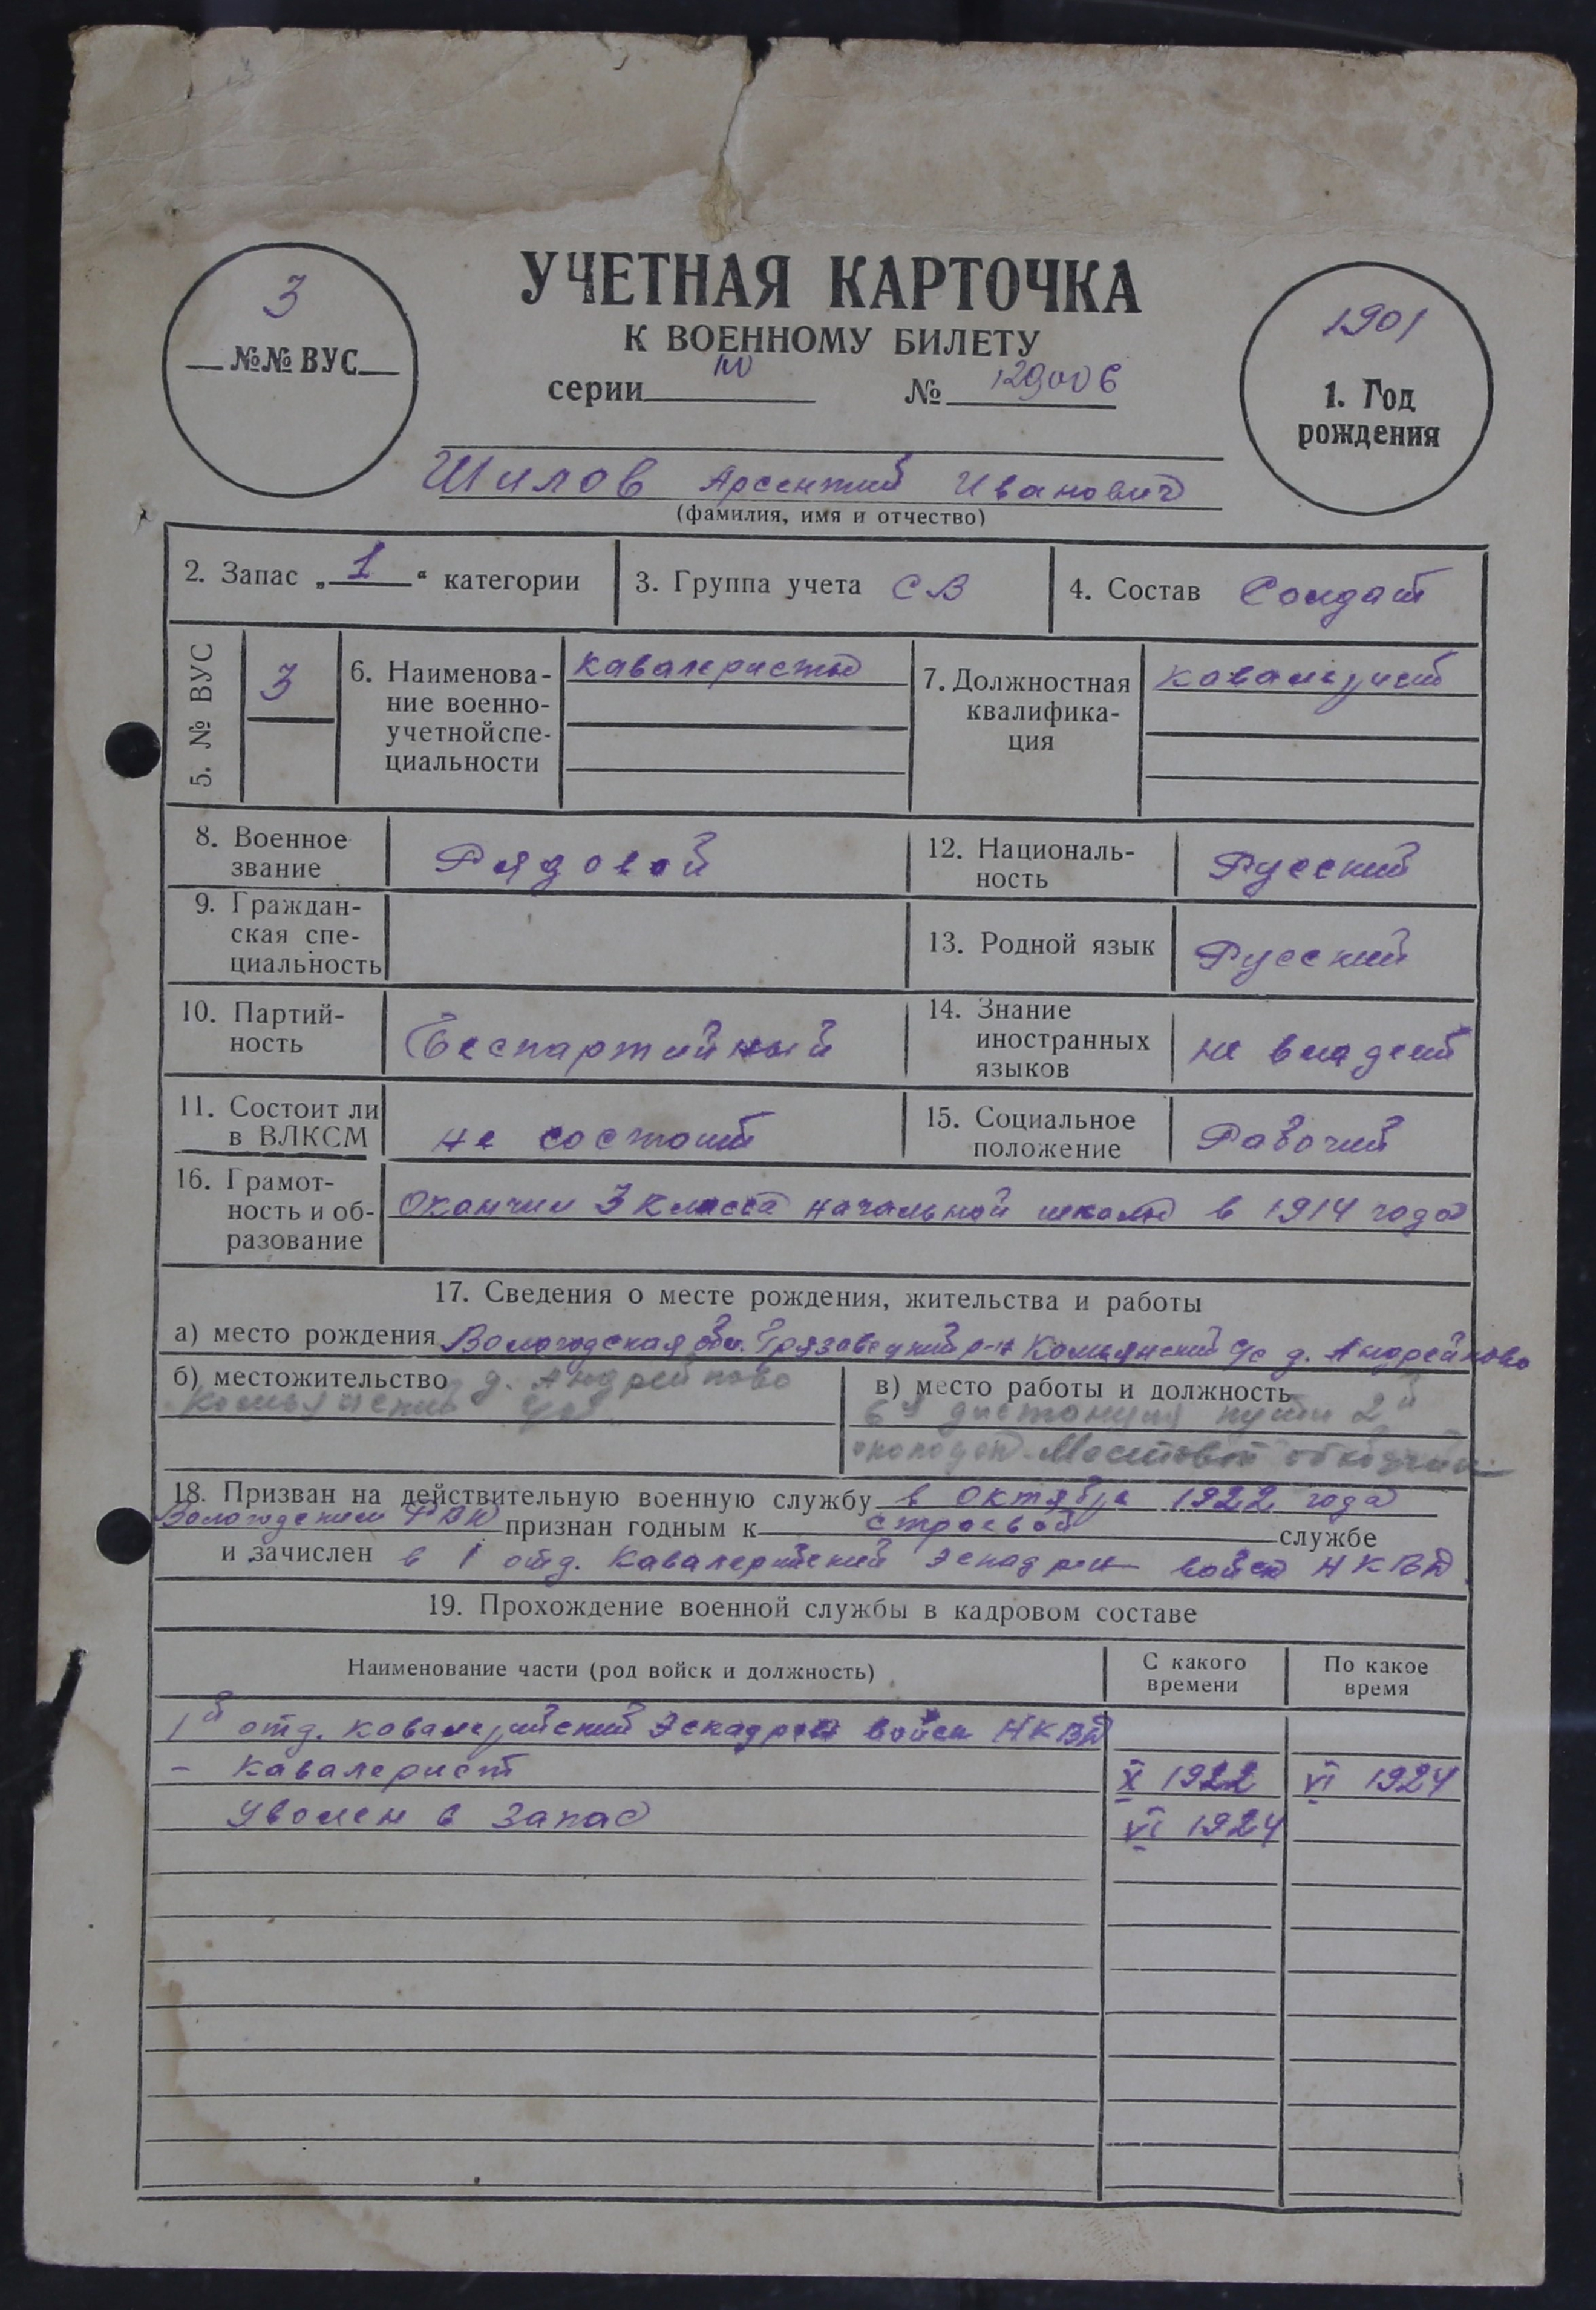 УЧЕТНАЯ КАРТОЧКА
К ВОЕННОМУ БИЛЕТУ
серии № 129006
3
№№ ВУС
1901
1. Год рождения
Шилов Арсентий Иванович
(фамилия, имя и отчество)
2. Запас „1“ категории
3. Группа учета СВ
4. Состав Солдат
5. № ВУС 3
6. Наименова-
ние военно-
учетной спе-
циальности
кавалеристы
7. Должностная
квалифика-
ция
кавалерист
8. Военное
звание
Рядовой
12. Националь-
ность
Русский
9. Граждан-
ская спе-
циальность
13. Родной язык Русский
10. Партий-
ность
Беспартийный
14. Знание
иностранных
языков
не владеет
11. Состоит ли
в ВЛКСМ
не состоит
15. Социальное
положение
Рабочий
16. Грамот-
ность и об-
разование
Окончил 3 класса начальной школы в 1914 году
17. Сведения о месте рождения, жительства и работы
а) место рождения Вологодская обл. Грязовецкий р-н Комьянский с/с д. Андрейково
б) местожительство д. Андрейково
Комьянский с/с
в) место работы и должность
6я дистанция пути 2й
околодок Мостовой обходчик
18. Призван на действительную военную службу в октябре 1922 года
Вологодским РВК признан годным к строевой службе
и зачислен в 1 отд. Кавалерийский эскадрон войск НКВД
19. Прохождение военной службы в кадровом составе
Наименование части (род войск и должность)
С какого
времени
По какое
время
1й отд. кавалерийский эскадрон войск НКВД
- кавалерист X 1922 VI 1924
Уволен в запас VI 1924